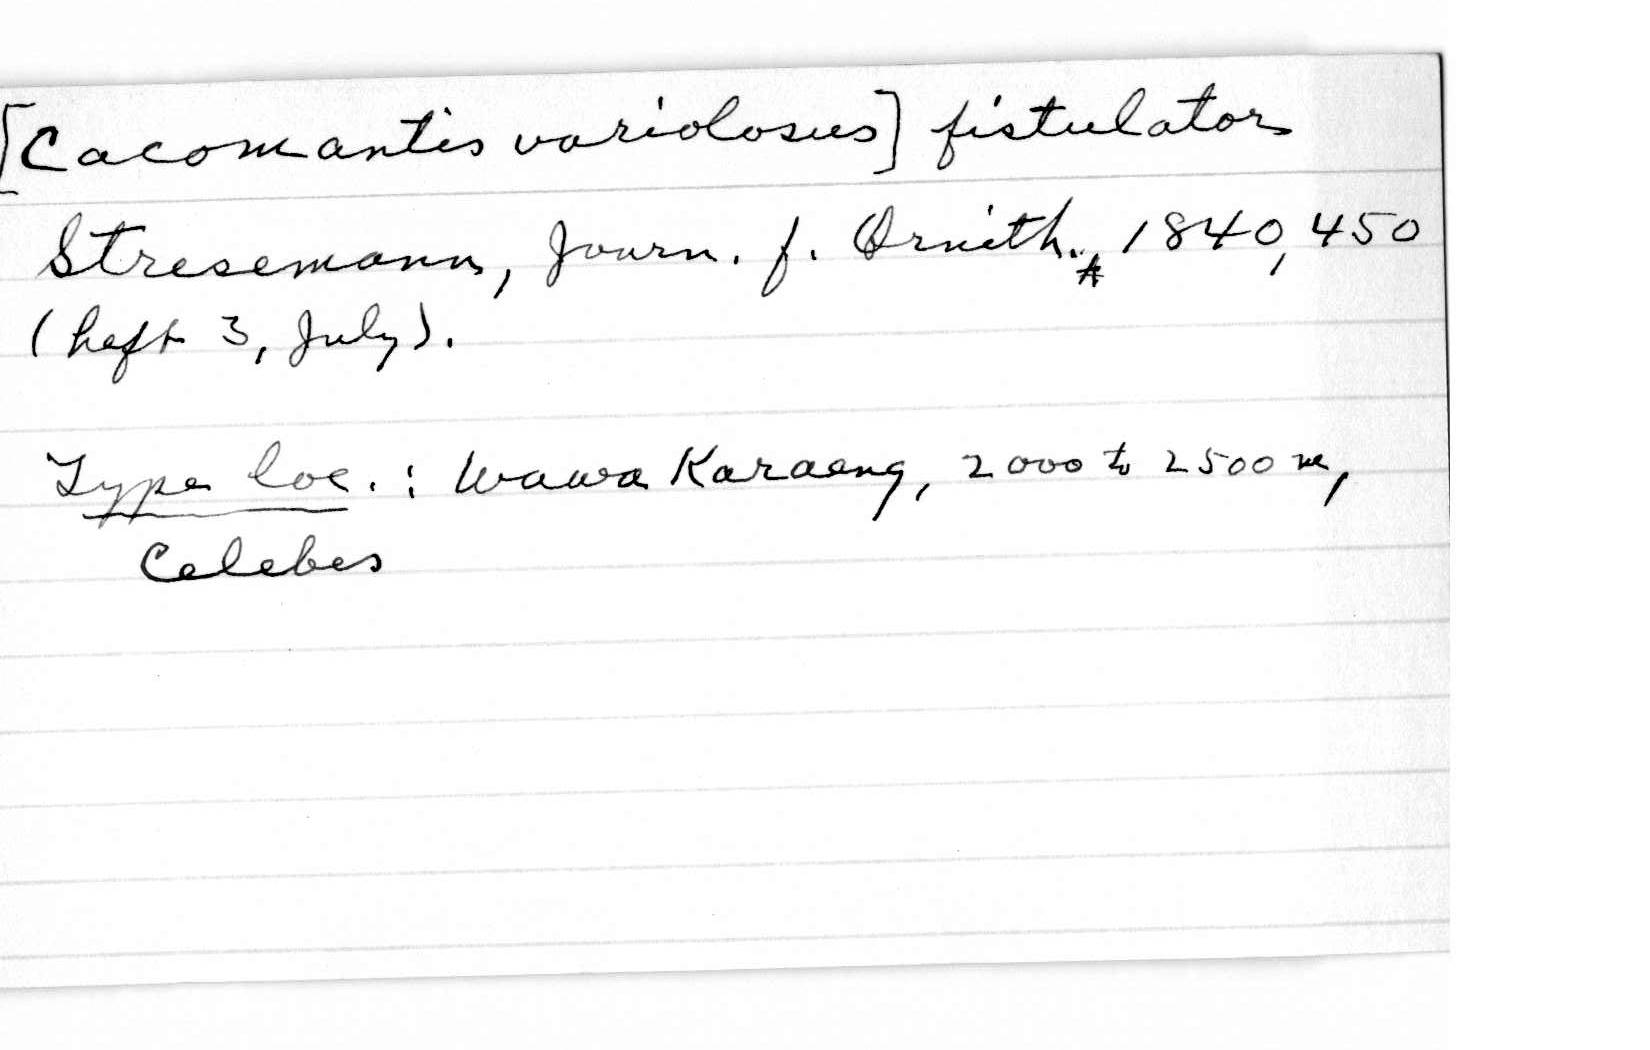 [Cacomantis variolosus] fistulator
Stresemann, Journ. f. Ornith., 1840, 450
(heft 3, July).
Type loc. : Wawa Karaeng, 2000 to 2500 m,
Celebes